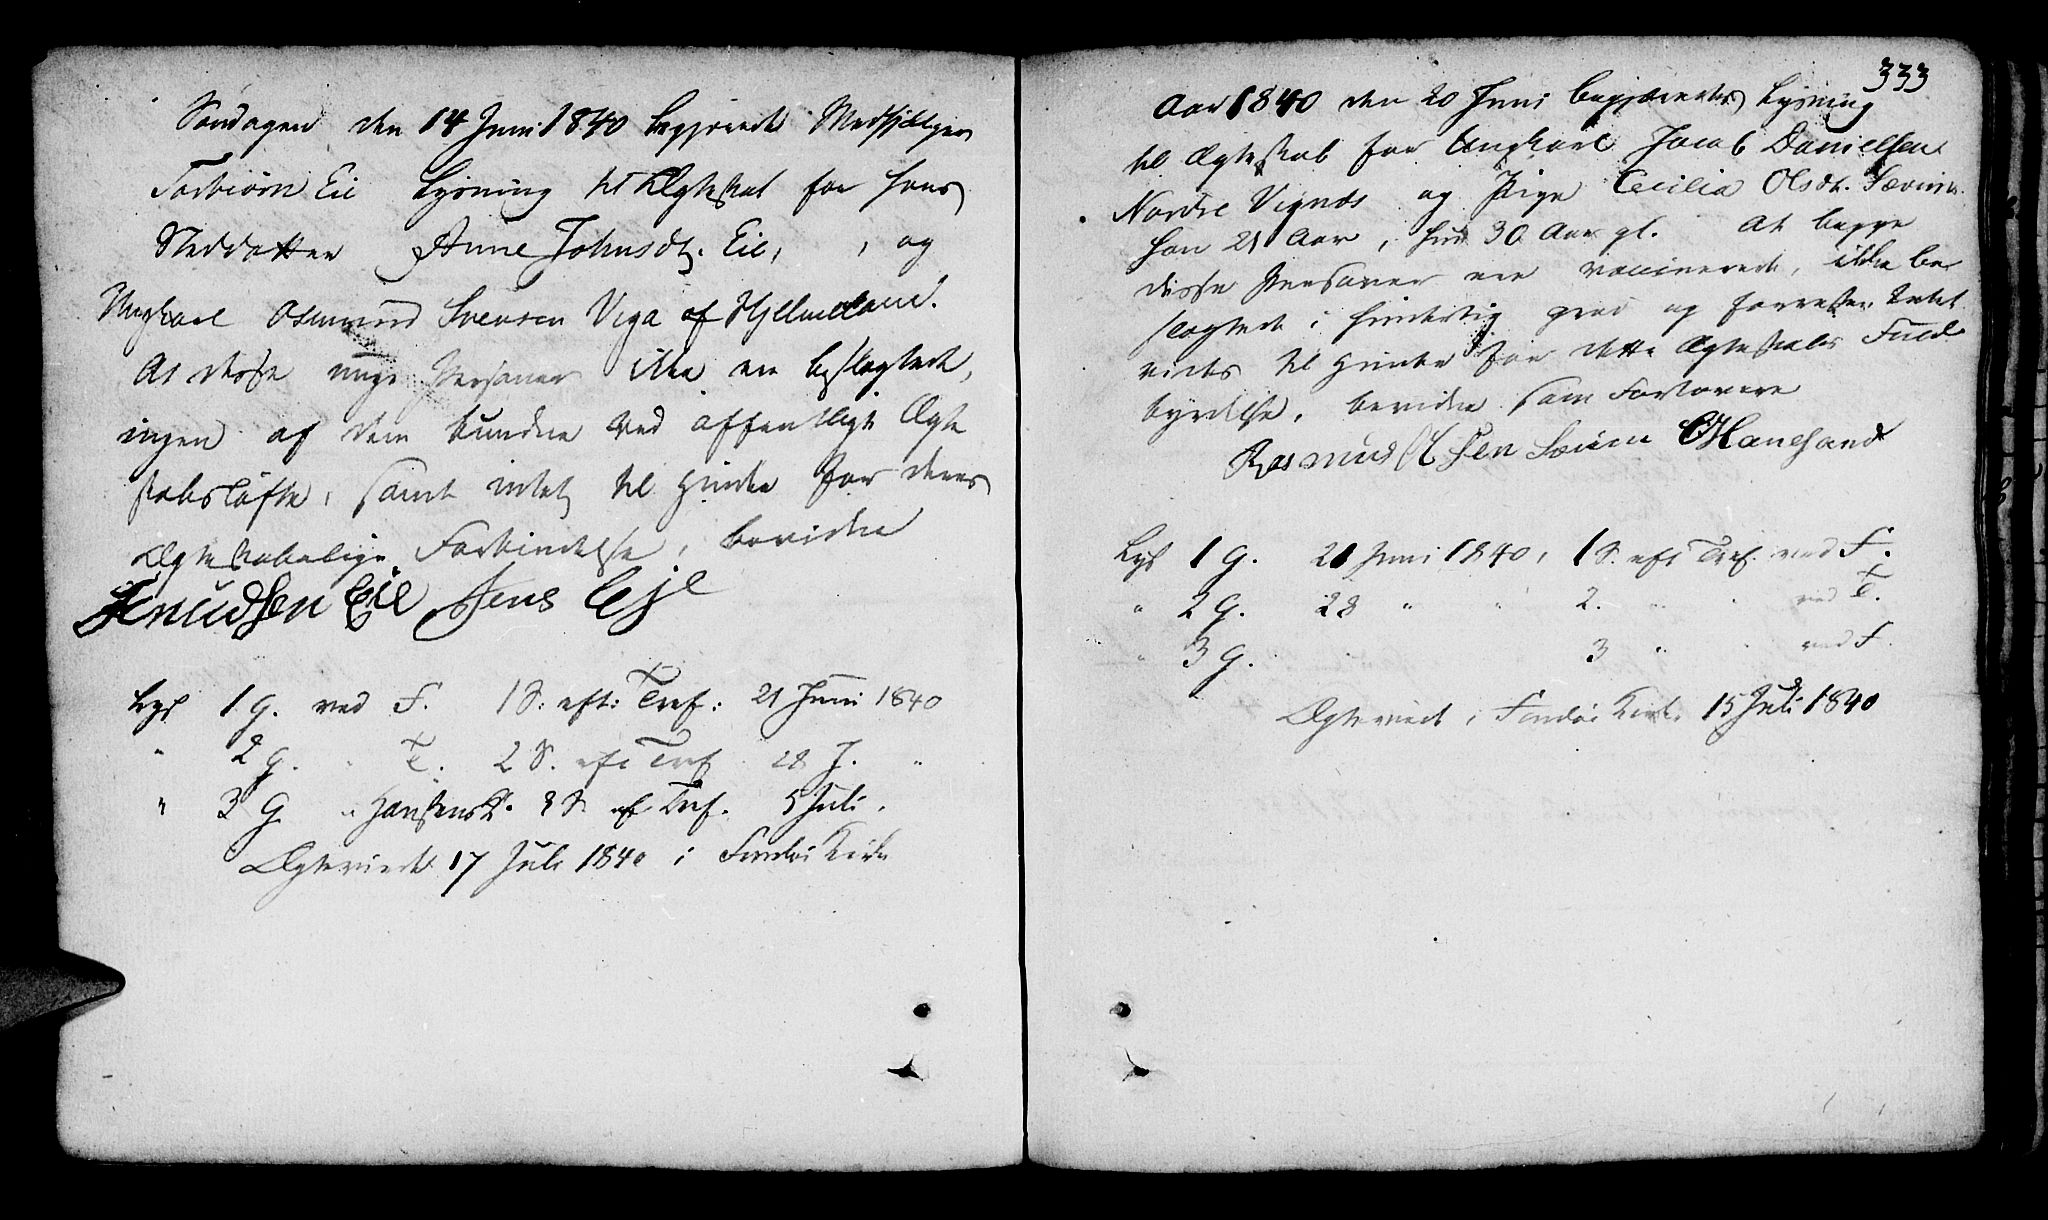 Søndagen den 14 Juni 1840 begjerede Medhjelper
Torbiørn Eie Lysning til Ægteskab for hans
Steddatter Anne Johnsdt. Eie, og
Ungkarl Osmund Svensen Viga af Hjelmeland.
At disse unge Personer ikke ere beslægtede,
ingen af dem bundne ved offentligt Ægte
skabsløfte, samt intet til Hinder for deres
Ægteskabelige Forbindelse, bevidne
Knudsen Eie Jens Eje
Lyst 1 G. ved F. 1 S. eft: Tref: 21 Juni 1840
" 2 G. " T. 2 S. eft Tref 28 J. "
" 3 G " 3 S. ef Tref. 5 Juli.
Ægteviede 17 Juli 1840 i Findøi Kirke
333
Aar 1840 den 20 Juni begjæredes Lysning
til Ægteskab for Ungkarl Jacob Danielsen
Nordre Vignes og Pige Cecilia Olsdt. Sævim
han 21 Aar, hun 30 Aar gl. At begge
disse Personer ere vaccinerede, ikke be
slægtede i hinderlig grad og forresten Intet
vides til Hinder for dette Ægteskabs Fuld
byrdelse, bevidne som Forlovere
Rasmus Olsen Sævim Hanesand
Lyst 1 G. 21 Juni 1840, 1 S. eft Tref. ved F.
" 2 G. 28 " " 2. " " ved T.
" 3 G. 3 " " ved F.
Ægteviede i Findøi Kirke 15 Juli 1840